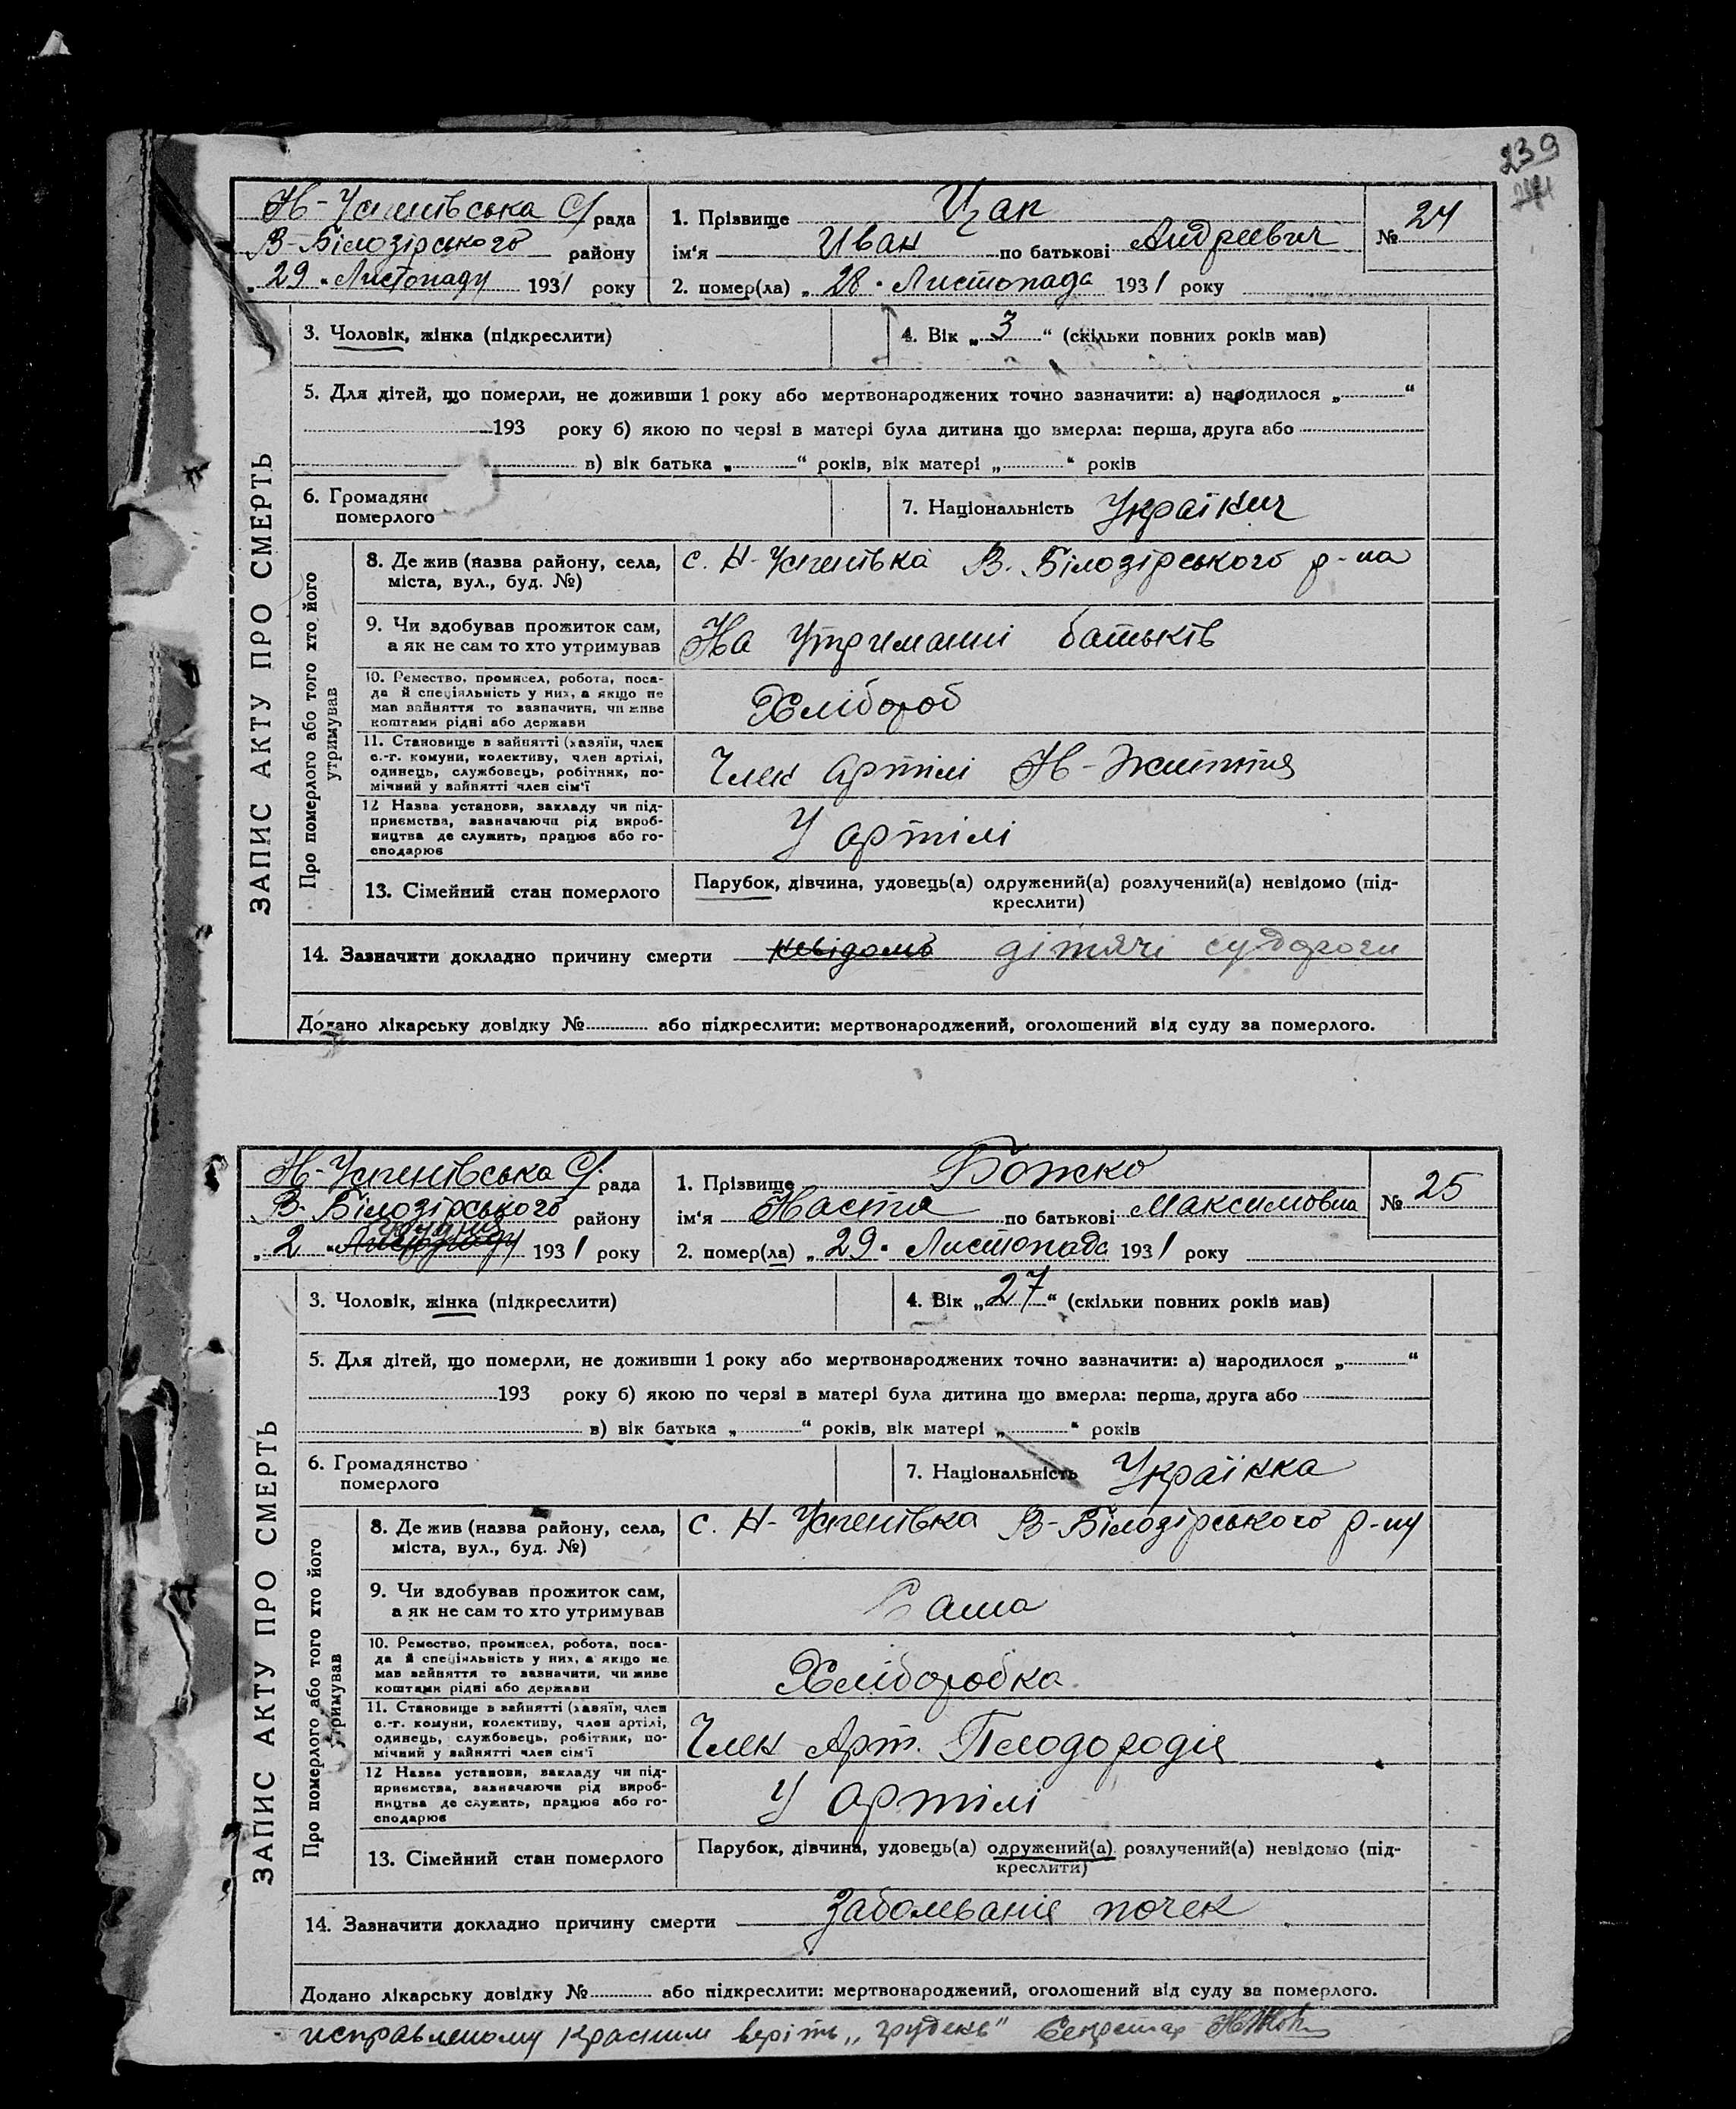 239
Н-Успенівська С/рада
В-Білозірського району
„29“ Листопаду 1931 року
1. Прізвище Цап
ім'я Иван по батькові Андреевич
№ 24
2. помер(ла) „28“ Листопада 1931 року
ЗАПИС АКТУ ПРО СМЕРТЬ
3. Чоловік, жінка (підкреслити)
4. Вік „3“ (скільки повних років мав)
5. Для дітей, що померли, не доживши 1 року або мертвонароджених точно зазначити: а) народилося „ “
193 року б) якою по черзі в матері була дитина що вмерла: перша, друга або
в) вік батька „ “ років, вік матері „ “ років
6. Громадянс
померлого
7. Національність Українец
Про померлого або того хто його
утримував
8. Де жив (назва району, села,
міста, вул., буд. №)
с. Н-Успенівка В. Білозірського р-на
9. Чи здобував прожиток сам,
а як не сам то хто утримував
На утриманні батьків
10. Ремество, промисел, робота, поса-
да й спеціяльність у них, а якщо не
мав зайняття то зазначити, чи живе
коштами рідні або держави
Хлібороб
11. Становище в зайнятті (хазяїн, член
с.-г. комуни, колективу, член артілі,
одинець, службовець, робітник, по-
мічний у зайнятті член сім'ї
Член артілі Н-Життя
12 Назва установи, закладу чи під-
приємства, зазначаючи рід вироб-
ництва де служить, працює або го-
сподарює
У артілі
13. Сімейний стан померлого
Парубок, дівчина, удовець(а) одружений(а) розлучений(а) невідомо (під-
креслити)
14. Зазначити докладно причину смерти невідомо дітячі судороги
Додано лікарську довідку № або підкреслити: мертвонароджений, оголошений від суду за померлого.
Н-Успенівська С/рада
В-Білозірського району
грудня
„2“ Листопаду 1931 року
1. Прізвище Божко
ім'я Настя по батькові Максимовна
№ 25
2. помер(ла) „29“ Листопада 1931 року
ЗАПИС АКТУ ПРО СМЕРТЬ
3. Чоловік, жінка (підкреслити)
4. Вік „27“ (скільки повних років мав)
5. Для дітей, що померли, не доживши 1 року або мертвонароджених точно зазначити: а) народилося „ “
193 року б) якою по черзі в матері була дитина що вмерла: перша, друга або
в) вік батька „ “ років, вік матері „ “ років
6. Громадянство
померлого
7. Національність Українка
Про померлого або того хто його
утримував
8. Де жив (назва району, села,
міста, вул., буд. №)
с. Н-Успенівка В-Білозірського р-ну
9. Чи здобував прожиток сам,
а як не сам то хто утримував
Сама
10. Ремество, промисел, робота, поса-
да й спеціяльність у них, а якщо не
мав зайняття то зазначити, чи живе
коштами рідні або держави
Хліборобка
11. Становище в зайнятті (хазяїн, член
с.-г. комуни, колективу, член артілі,
одинець, службовець, робітник, по-
мічний у зайнятті член сім'ї
Член Арт. Плодородія
12 Назва установи, закладу чи під-
приємства, зазначаючи рід вироб-
ництва де служить, працює або го-
сподарює
У артілі
13. Сімейний стан померлого
Парубок, дівчина, удовець(а) одружений(а) розлучений(а) невідомо (під-
креслити)
14. Зазначити докладно причину смерти Заболеваніє почек
Додано лікарську довідку № або підкреслити: мертвонароджений, оголошений від суду за померлого.
исправленому красним веріть „грудень“ Секретар